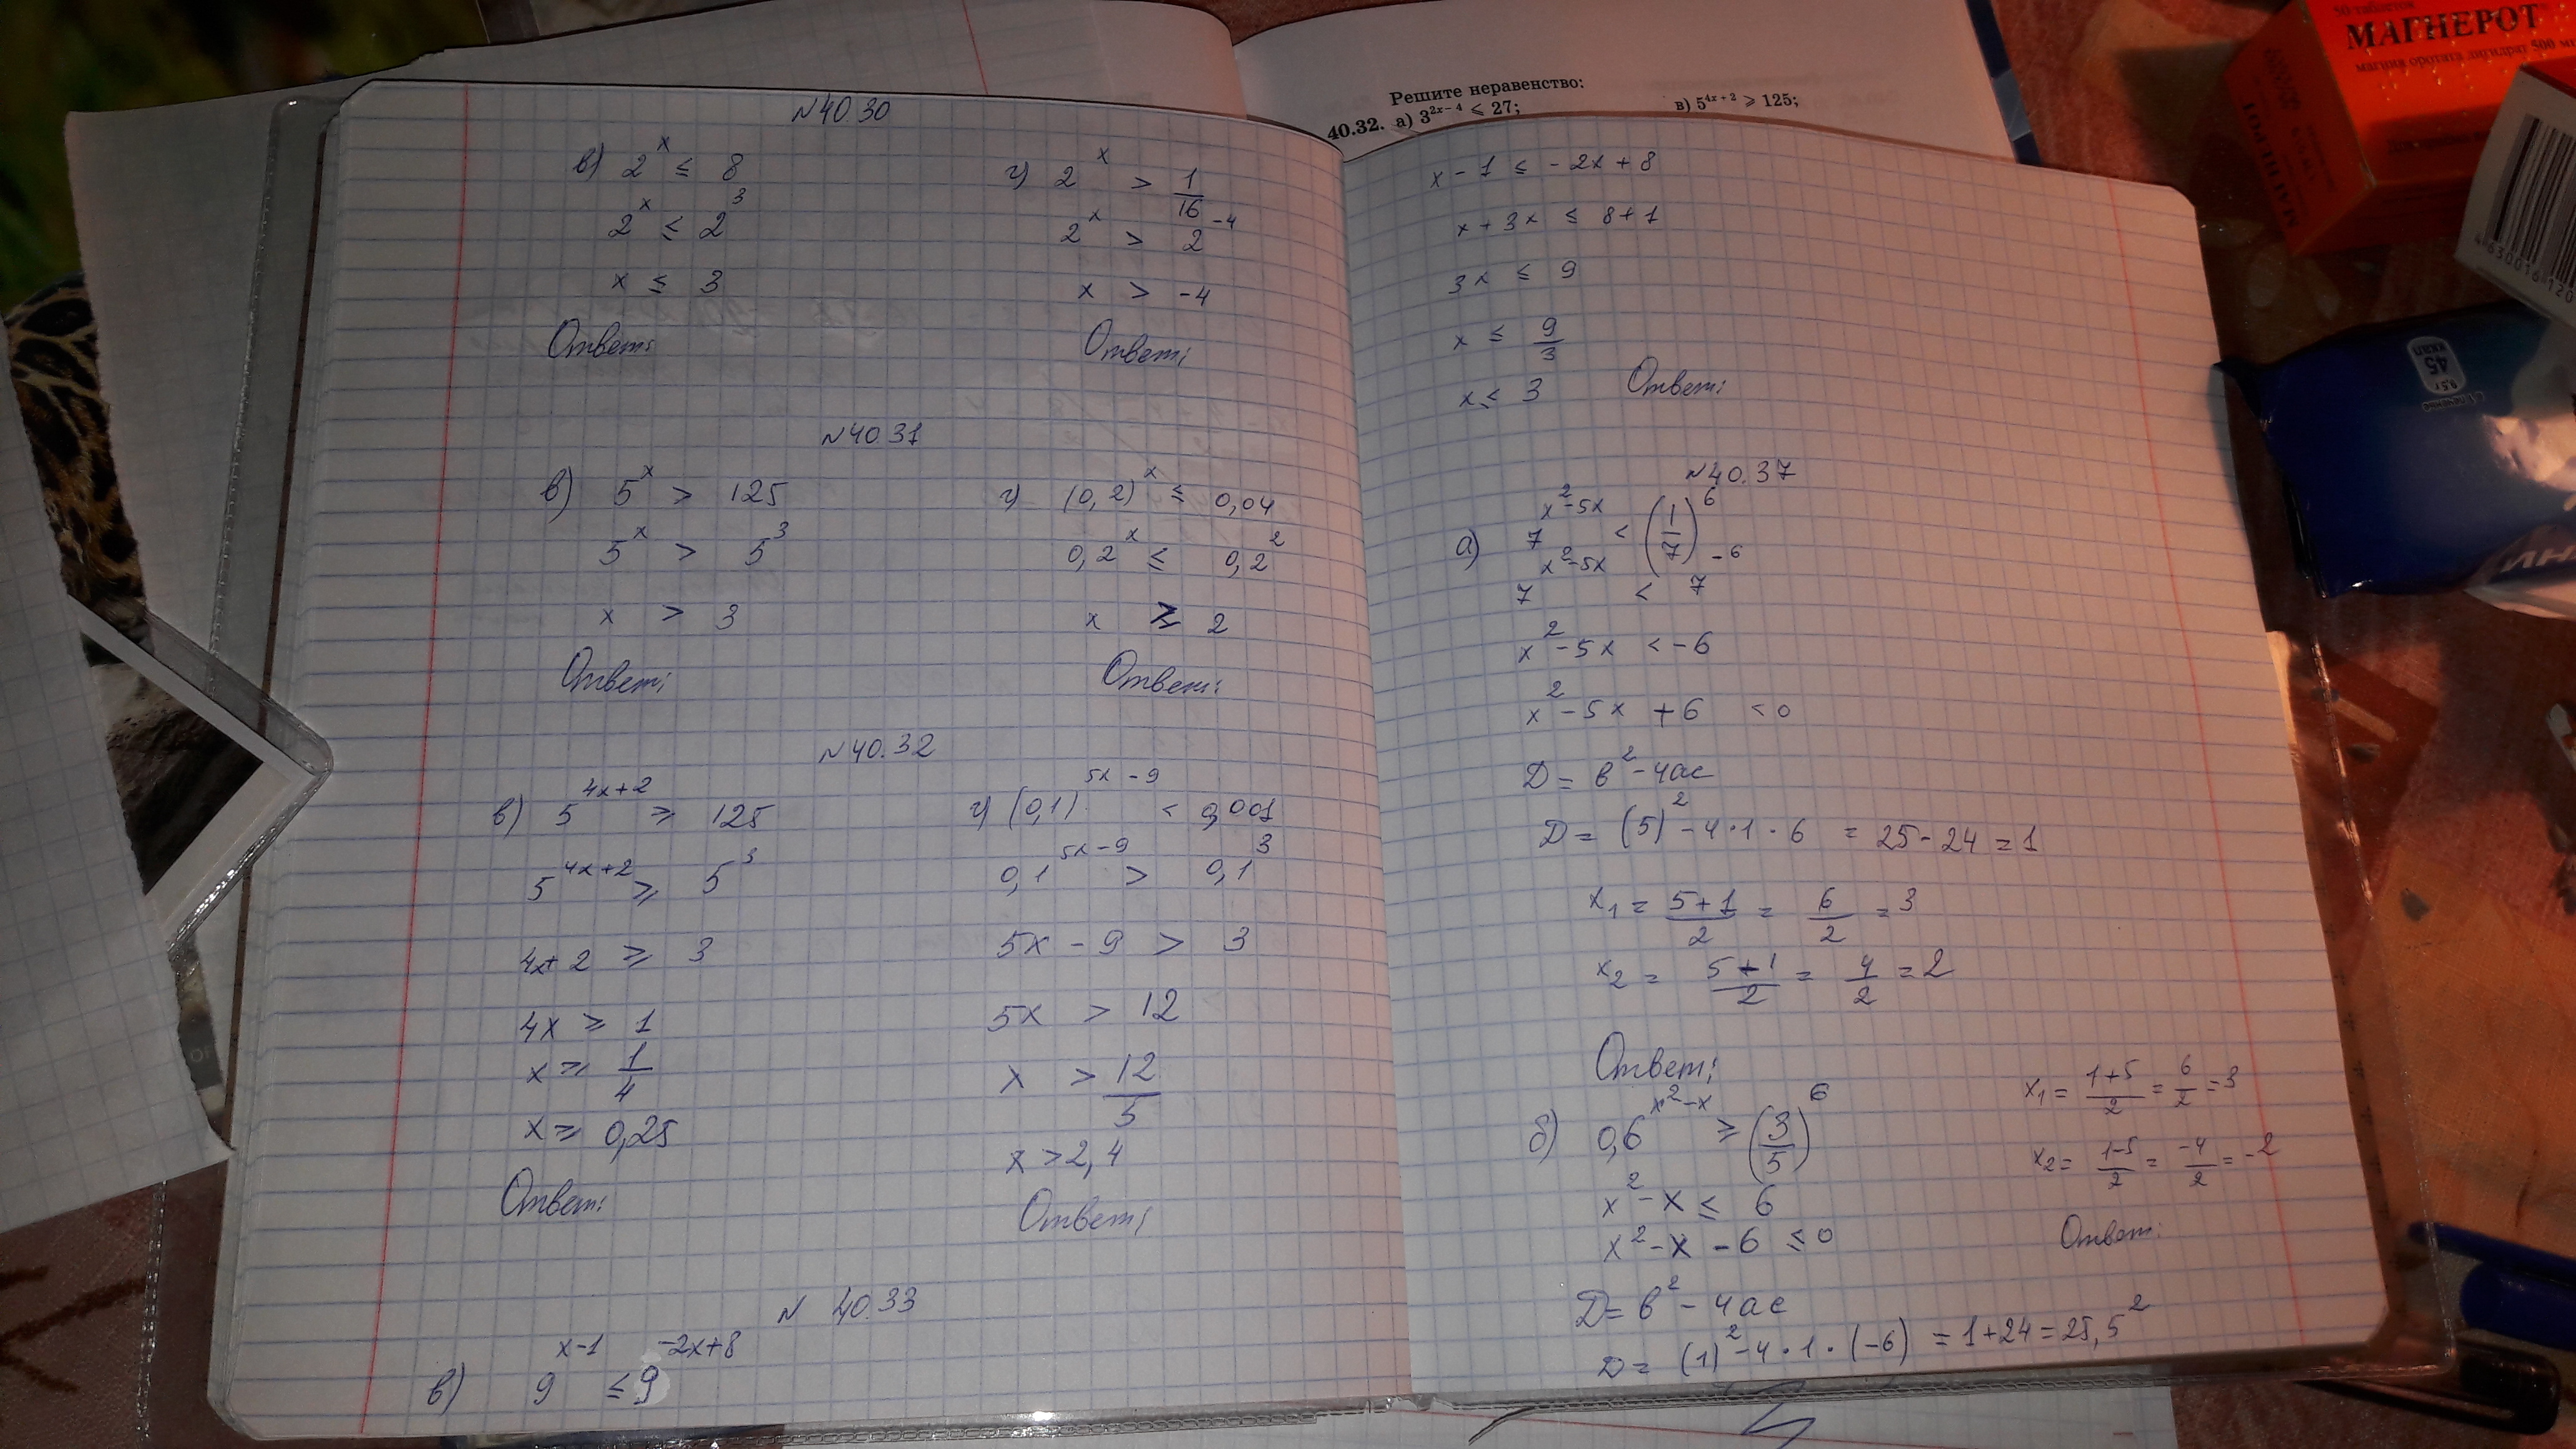 Решите неравенство:
40.32. а) 3^{2x-4} ⩽ 27; в) 5^{4x+2} ⩾ 125;
50 таблеток
МАГНЕРОТ
магния оротата дигидрат 500 м
МАГНЕРОТ
4 630016 120
45
ккал
9,5 г
N 40.30
в) 2^x ≤ 8
2^x ≤ 2^3
x ≤ 3
Ответ:
г) 2^x > 1/16
2^x > 2^{-4}
x > -4
Ответ:
N 40.31
в) 5^x > 125
5^x > 5^3
x > 3
Ответ:
г) (0,2)^x ≤ 0,04
0,2^x ≤ 0,2^2
x ≥ 2
Ответ:
N 40.32
в) 5^{4x+2} ⩾ 125
5^{4x+2} ⩾ 5^3
4x+2 ⩾ 3
4x ⩾ 1
x ⩾ 1/4
x ⩾ 0,25
Ответ:
г) (0,1)^{5x-9} < 0,001
0,1^{5x-9} > 0,1^3
5x - 9 > 3
5x > 12
x > 12/5
x > 2,4
Ответ:
N 40.33
в) 9^{x-1} ≤ 9^{-2x+8}
x - 1 ≤ -2x + 8
x + 3x ≤ 8+1
3x ≤ 9
x ≤ 9/3
x ≤ 3 Ответ:
N 40.37
а) 7^{x^2-5x} < (1/7)^6
7^{x^2-5x} < 7^{-6}
x^2 - 5x < -6
x^2 - 5x + 6 < 0
D = b^2 - 4ac
D = (5)^2 - 4·1·6 = 25 - 24 = 1
x1 = 5+1/2 = 6/2 = 3
x2 = 5-1/2 = 4/2 = 2
Ответ:
б) 0,6^{x^2-x} ⩾ (3/5)^6
x^2 - x ≤ 6
x^2 - x - 6 ≤ 0
D = b^2 - 4ac
D = (1)^2 - 4·1·(-6) = 1+24 = 25, 5^2
x1 = 1+5/2 = 6/2 = 3
x2 = 1-5/2 = -4/2 = -2
Ответ: